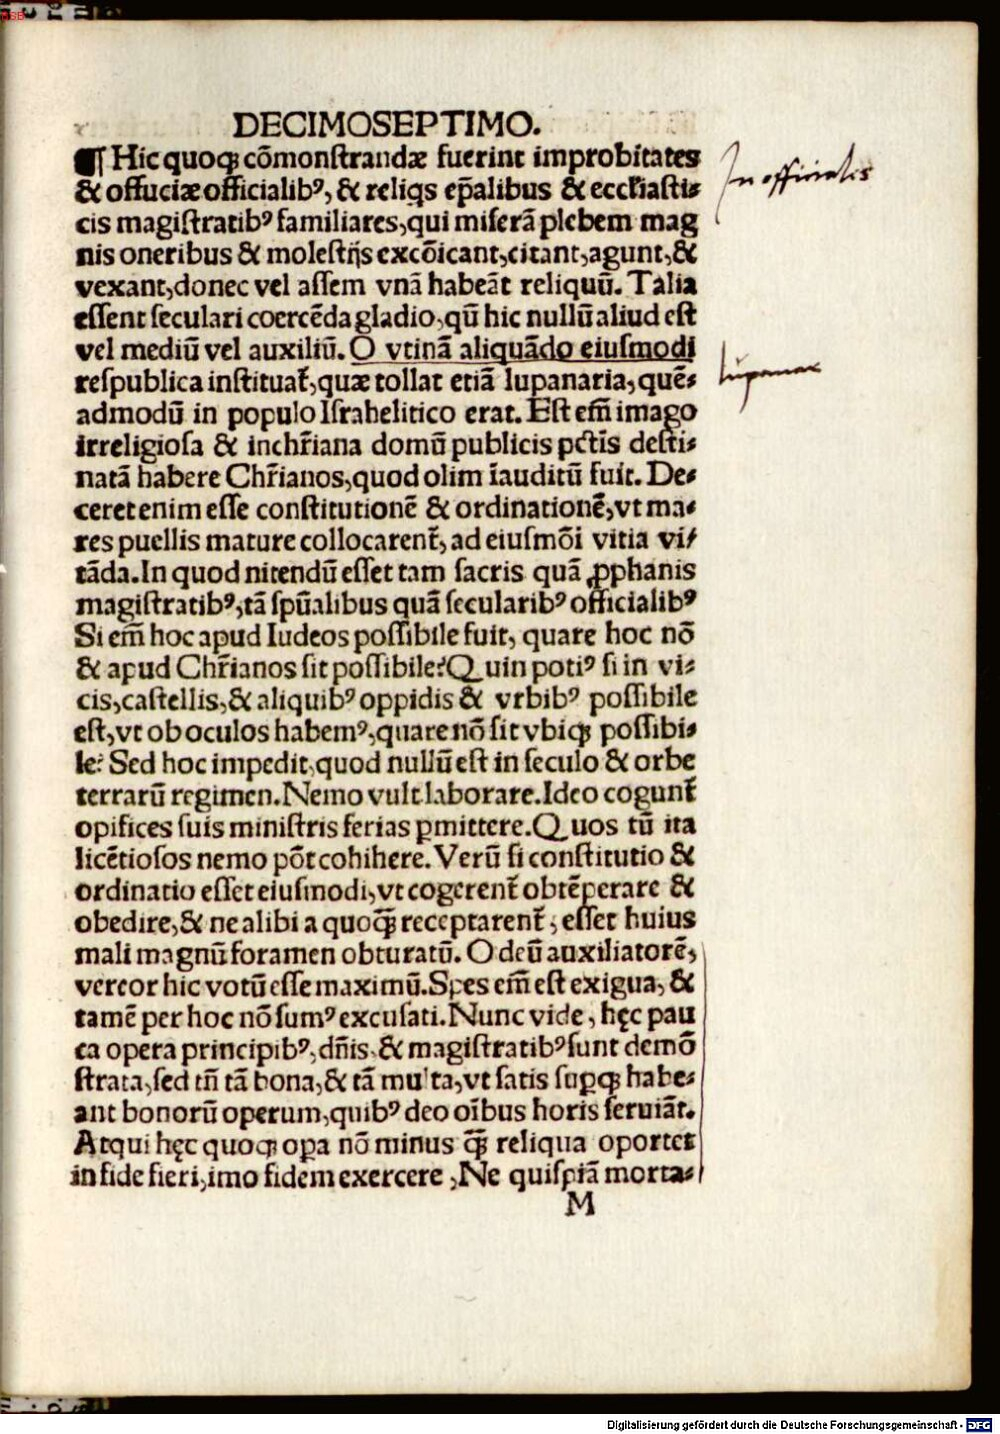 DECIMOSEPTIMO.
¶ Hic quoqꝫ cõmonſtrandæ fuerint improbitates
& offuciæ officialibꝰ, & reliq̃s ep̃alibus & eccl̃iaſti⸗
cis magiſtratibꝰ familiares, qui miſerã plebem mag
nis oneribus & moleſtijs excõicant, citant, agunt, &
vexant, donec vel aſſem vnã habeãt reliquũ. Talia
eſſent ſeculari coercẽda gladio, qũ hic nullũ aliud eſt
vel mediũ vel auxiliũ. O vtinã aliquãdo eiuſmodi
reſpublica inſtituat᷑, quæ tollat etiã lupanaria, quẽ⸗
admodũ in populo Iſrahelitico erat. Eſt em̃ imago
irreligioſa & inchr̃iana domũ publicis pctĩs deſti⸗
natã habere Chr̃ianos, quod olim ĩauditũ fuit. De⸗
ceret enim eſſe conſtitutionẽ & ordinationẽ, vt ma⸗
res puellis mature collocarent᷑, ad eiuſmõi vitia vi⸗
tãda. In quod nitendũ eſſet tam ſacris quã ꝓphanis
magiſtratibꝰ, tã ſpũalibus quã ſecularibꝰ officialibꝰ
Si em̃ hoc apud Iudeos poſſibile fuit, quare hoc nõ
& apud Chr̃ianos ſit poſſibile? Quin potiꝰ ſi in vi⸗
cis, caſtellis, & aliquibꝰ oppidis & vrbibꝰ poſſibile
eſt, vt ob oculos habemꝰ, quare nõ ſit vbiqꝫ poſſibi⸗
le? Sed hoc impedit, quod nullũ eſt in ſeculo & orbe
terrarũ regimen. Nemo vult laborare. Ideo cogunt᷑
opifices ſuis miniſtris ferias ꝑmittere. Quos tũ ita
licẽtioſos nemo põt cohihere. Verũ ſi conſtitutio &
ordinatio eſſet eiuſmodi, vt cogerent᷑ obtẽperare &
obedire, & ne alibi a quoꝗ̃ receptarent᷑, eſſet huius
mali magnũ foramen obturatũ. O deũ auxiliatorẽ,
vereor hic votũ eſſe maximũ. Spes em̃ eſt exigua, &
tamẽ per hoc nõ ſumꝰ excuſati. Nunc vide, hęc pau
ca opera principibꝰ, dñis, & magiſtratibꝰ ſunt demõ
ſtrata, ſed tñ tã bona, & tã multa, vt ſatis ſuꝑqꝫ habe⸗
ant bonorũ operum, quibꝰ deo oĩbus horis ſeruiãt.
Atqui hęc quoqꝫ oꝑa nõ minus ꝗ̃ reliqua oportet
in fide fieri, imo fidem exercere, Ne quiſpiã morta⸗
M
In officialis
lupanar
BSB
Digitalisierung gefördert durch die Deutsche Forschungsgemeinschaft - DFG